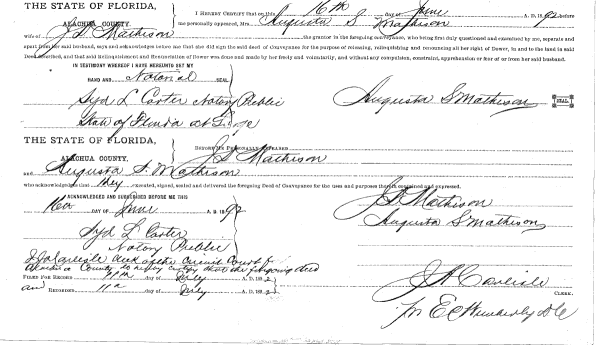 THE STATE OF FLORIDA,
ALACHUA COUNTY.
I HEREBY CERTIFY that on this 16th day of June A. D. 1892 before
me personally appeared, Mrs. Augusta S Mathison
wife of J. S. Mathison the grantor to the foregoing conveyance, who being first duly questioned and examined by me, separate and
apart from her said husband, says and acknowledges before me that she did sign the said deed of Conveyance for the purpose of releasing, relinquishing and renouncing all her right of Dower, in and to the land in said
Deed described, and that said Relinquishment and Renunciation of Dower was done and made by her freely and voluntarily, and without any compulsion, constraint, apprehension or fear of or from her said husband.
IN TESTIMONY WHEREOF I HAVE HEREUNTO SET MY
HAND AND Notorial SEAL
Syd L Carter Notary Public
State of Florida at Large
Augusta S Mathison SEAL
THE STATE OF FLORIDA,
ALACHUA COUNTY.
BEFORE ME PERSONALLY APPEARED J S Mathison
and Augusta S. Mathison
who acknowledged that they executed, signed, sealed and delivered the foregoing Deed of Conveyance for the uses and purposes therein contained and expressed.
ACKNOWLEDGED AND SUBSCRIBED BEFORE ME THIS
16th DAY OF June A. D. 1892
J S Mathison
Augusta S Mathison
Syd L Carter
Notary Public
clerk of the Circuit Court of
Alachua County do hereby certify that the foregoing deed
FILED FOR RECORD 11th day of July A. D. 1892
and RECORDED 11th day of July A. D. 1892
J A Carlisle
CLERK.